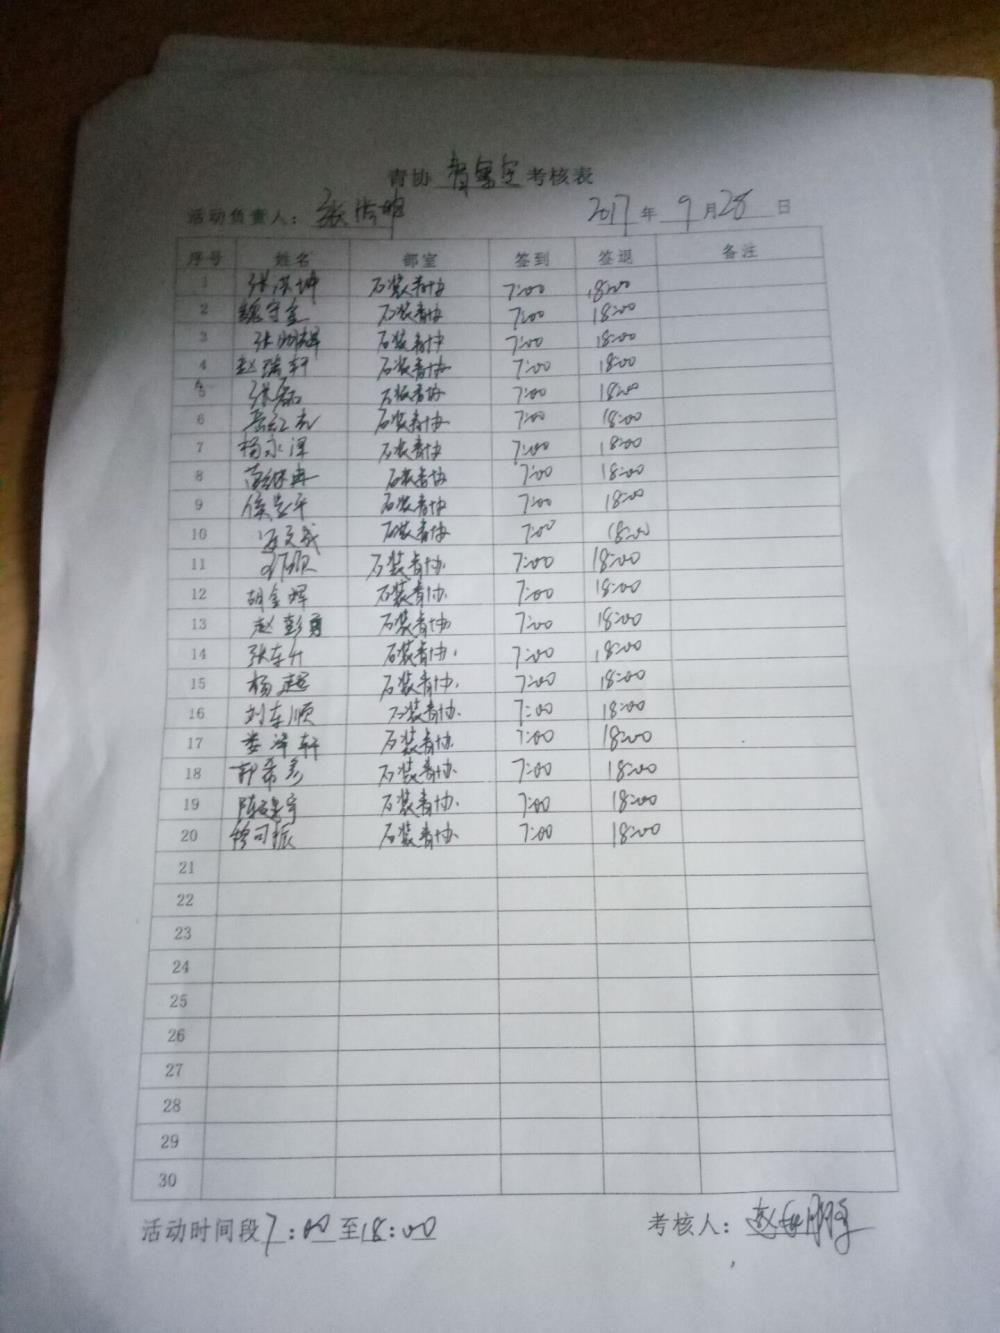 青协 考核表
活动负责人：张
2017 年 9 月 28 日
序号 姓名 部室 签到 签退 备注
1 张洪坤 石装青协 7:00 18:00
2 魏守金 石装青协 7:00 18:00
3 张 石装青协 7:00 18:00
4 赵瑞轩 石装青协 7:00 18:00
5 张磊 石装青协 7:00 18:00
6 石装青协 7:00 18:00
7 杨永泽 石装青协 7:00 18:00
8 石装青协 7:00 18:00
9 侯 平 石装青协 7:00 18:00
10 文 石装青协 7:00 18:00
11 石装青协 7:00 18:00
12 胡金辉 石装青协 7:00 18:00
13 赵彭勇 石装青协 7:00 18:00
14 张东升 石装青协 7:00 18:00
15 杨超 石装青协 7:00 18:00
16 刘东顺 石装青协 7:00 18:00
17 娄泽轩 石装青协 7:00 18:00
18 郭希彦 石装青协 7:00 18:00
19 陈 宇 石装青协 7:00 18:00
20 司振 石装青协 7:00 18:00
21
22
23
24
25
26
27
28
29
30
活动时间段7:00至18:00
考核人：赵